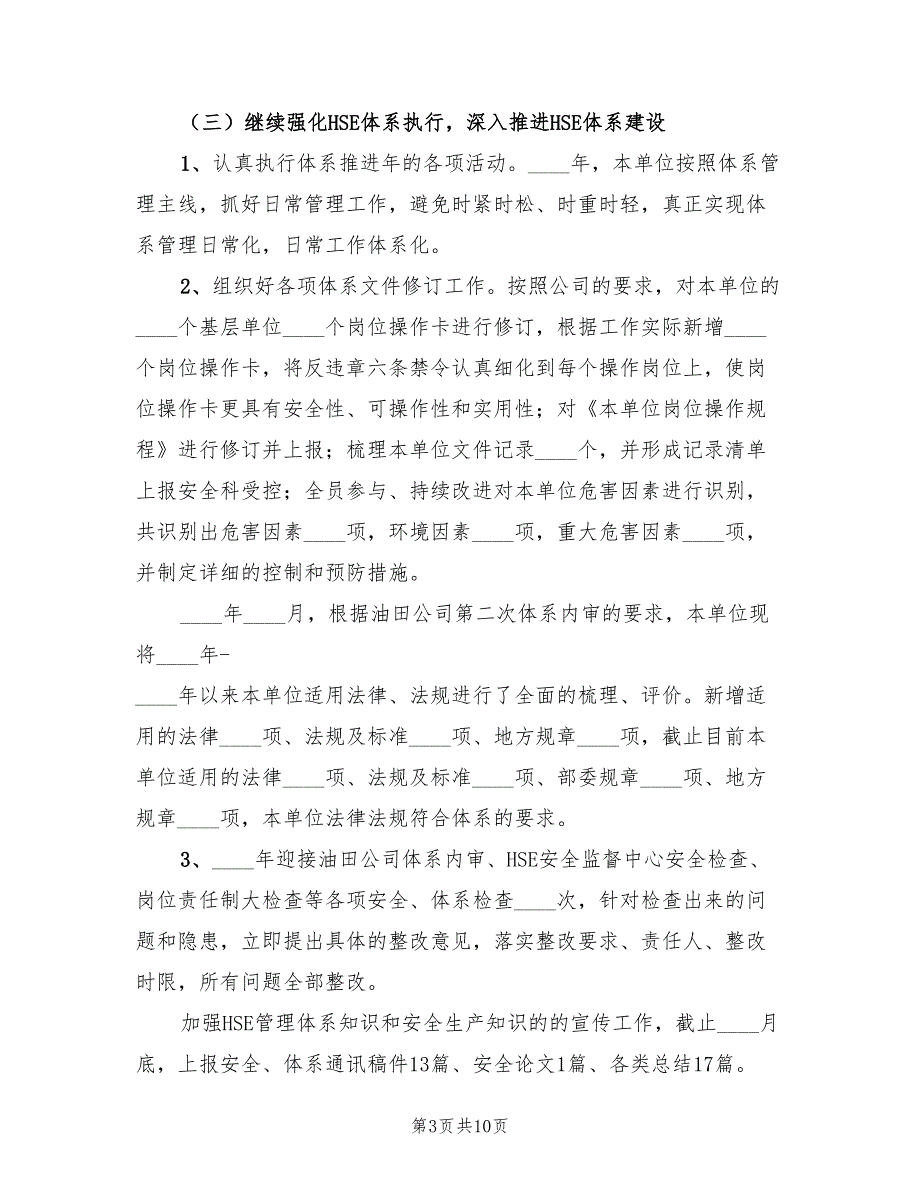 （三）继续强化HSE体系执行，深入推进HSE体系建设
1、认真执行体系推进年的各项活动。____年，本单位按照体系管
理主线，抓好日常管理工作，避免时紧时松、时重时轻，真正实现体
系管理日常化，日常工作体系化。
2、组织好各项体系文件修订工作。按照公司的要求，对本单位的
____个基层单位____个岗位操作卡进行修订，根据工作实际新增____
个岗位操作卡，将反违章六条禁令认真细化到每个操作岗位上，使岗
位操作卡更具有安全性、可操作性和实用性；对《本单位岗位操作规
程》进行修订并上报；梳理本单位文件记录____个，并形成记录清单
上报安全科受控；全员参与、持续改进对本单位危害因素进行识别，
共识别出危害因素____项，环境因素____项，重大危害因素____项，
并制定详细的控制和预防措施。
____年____月，根据油田公司第二次体系内审的要求，本单位现
将____年-
____年以来本单位适用法律、法规进行了全面的梳理、评价。新增适
用的法律____项、法规及标准____项、地方规章____项，截止目前本
单位适用的法律____项、法规及标准____项、部委规章____项、地方
规章____项，本单位法律法规符合体系的要求。
3、____年迎接油田公司体系内审、HSE安全监督中心安全检查、
岗位责任制大检查等各项安全、体系检查____次，针对检查出来的问
题和隐患，立即提出具体的整改意见，落实整改要求、责任人、整改
时限，所有问题全部整改。
加强HSE管理体系知识和安全生产知识的的宣传工作，截止____月
底，上报安全、体系通讯稿件13篇、安全论文1篇、各类总结17篇。
第3页共10页